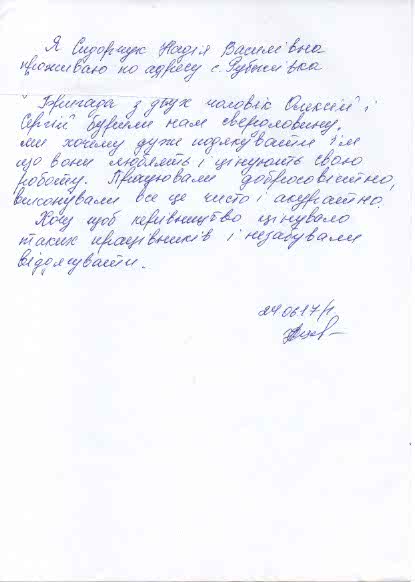 Я Сидорчук Надія Василівна
проживаю по адресу с. Рубежівка
"Бригада з двух чоловік Олексій і
Сергій" бурили нам сверловину,
ми хочемо дуже подякувати їм
що вони люблять і цінують свою
роботу. Працювали добросовістно,
виконували все це чисто і акуратно.
Хочу щоб керівництво цінувало
таких працівників і незабували
віддячувати.
29 06 17